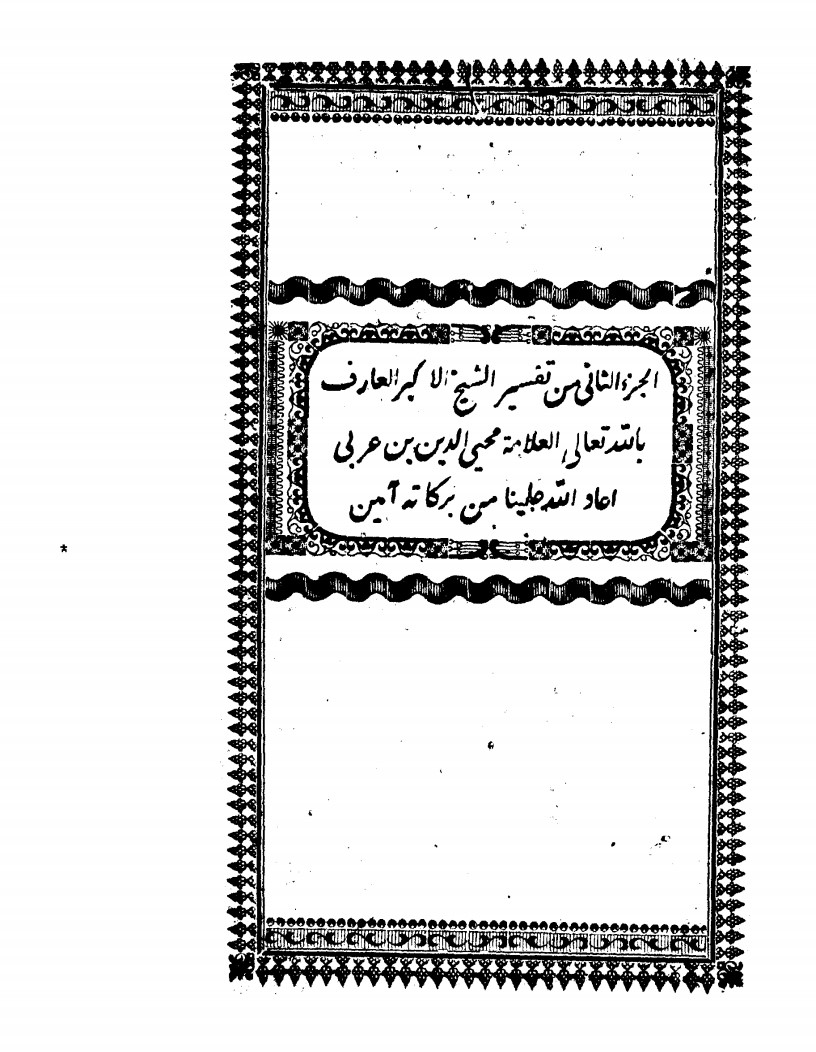 الجزء الثانى من تفسير الشيخ الاكبر العارف
بالله تعالى العلامة محيى الدين بن عربى
اعاد الله علينا من بركاته آمين
*